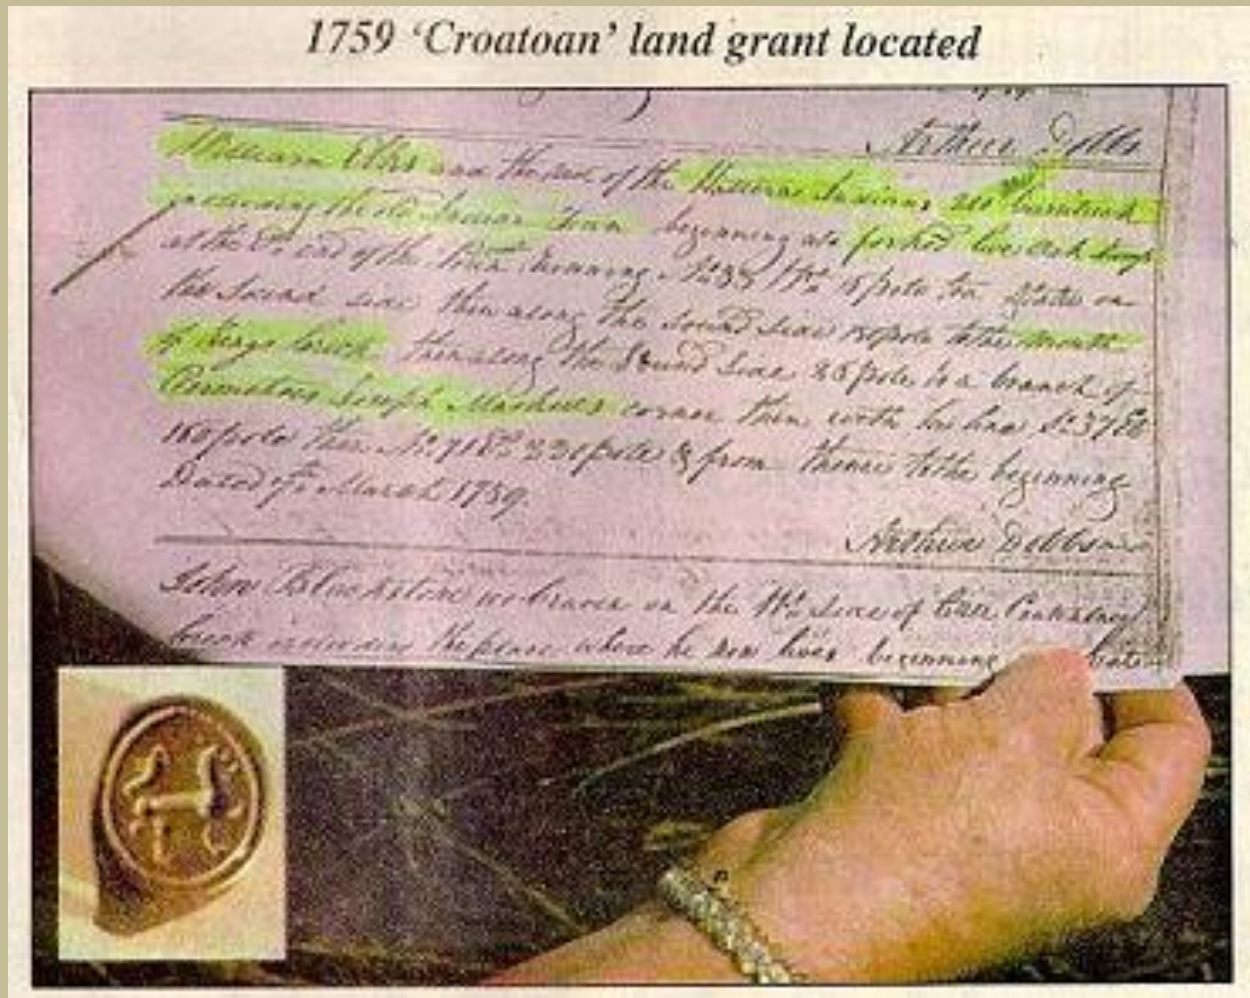 1759 ‘Croatoan’ land grant located
Arthur Dobbs
William Elks and the rest of the Hatteras Indians 200 Currituck
including the old Indian Town beginning at a forked live oak
at the end of the running 15 pole to a stake on
the Sound side then along the Sound side pole to the mouth
of Kings Creek then along the Sound Side 25 pole to a branch of
Joseph corner then with his line So 37
160 pole then 220 pole & from thence to the beginning
Dated March 1759.
Arthur Dobbs
John Blackstone on the side of
creek including the place where he now lives beginning